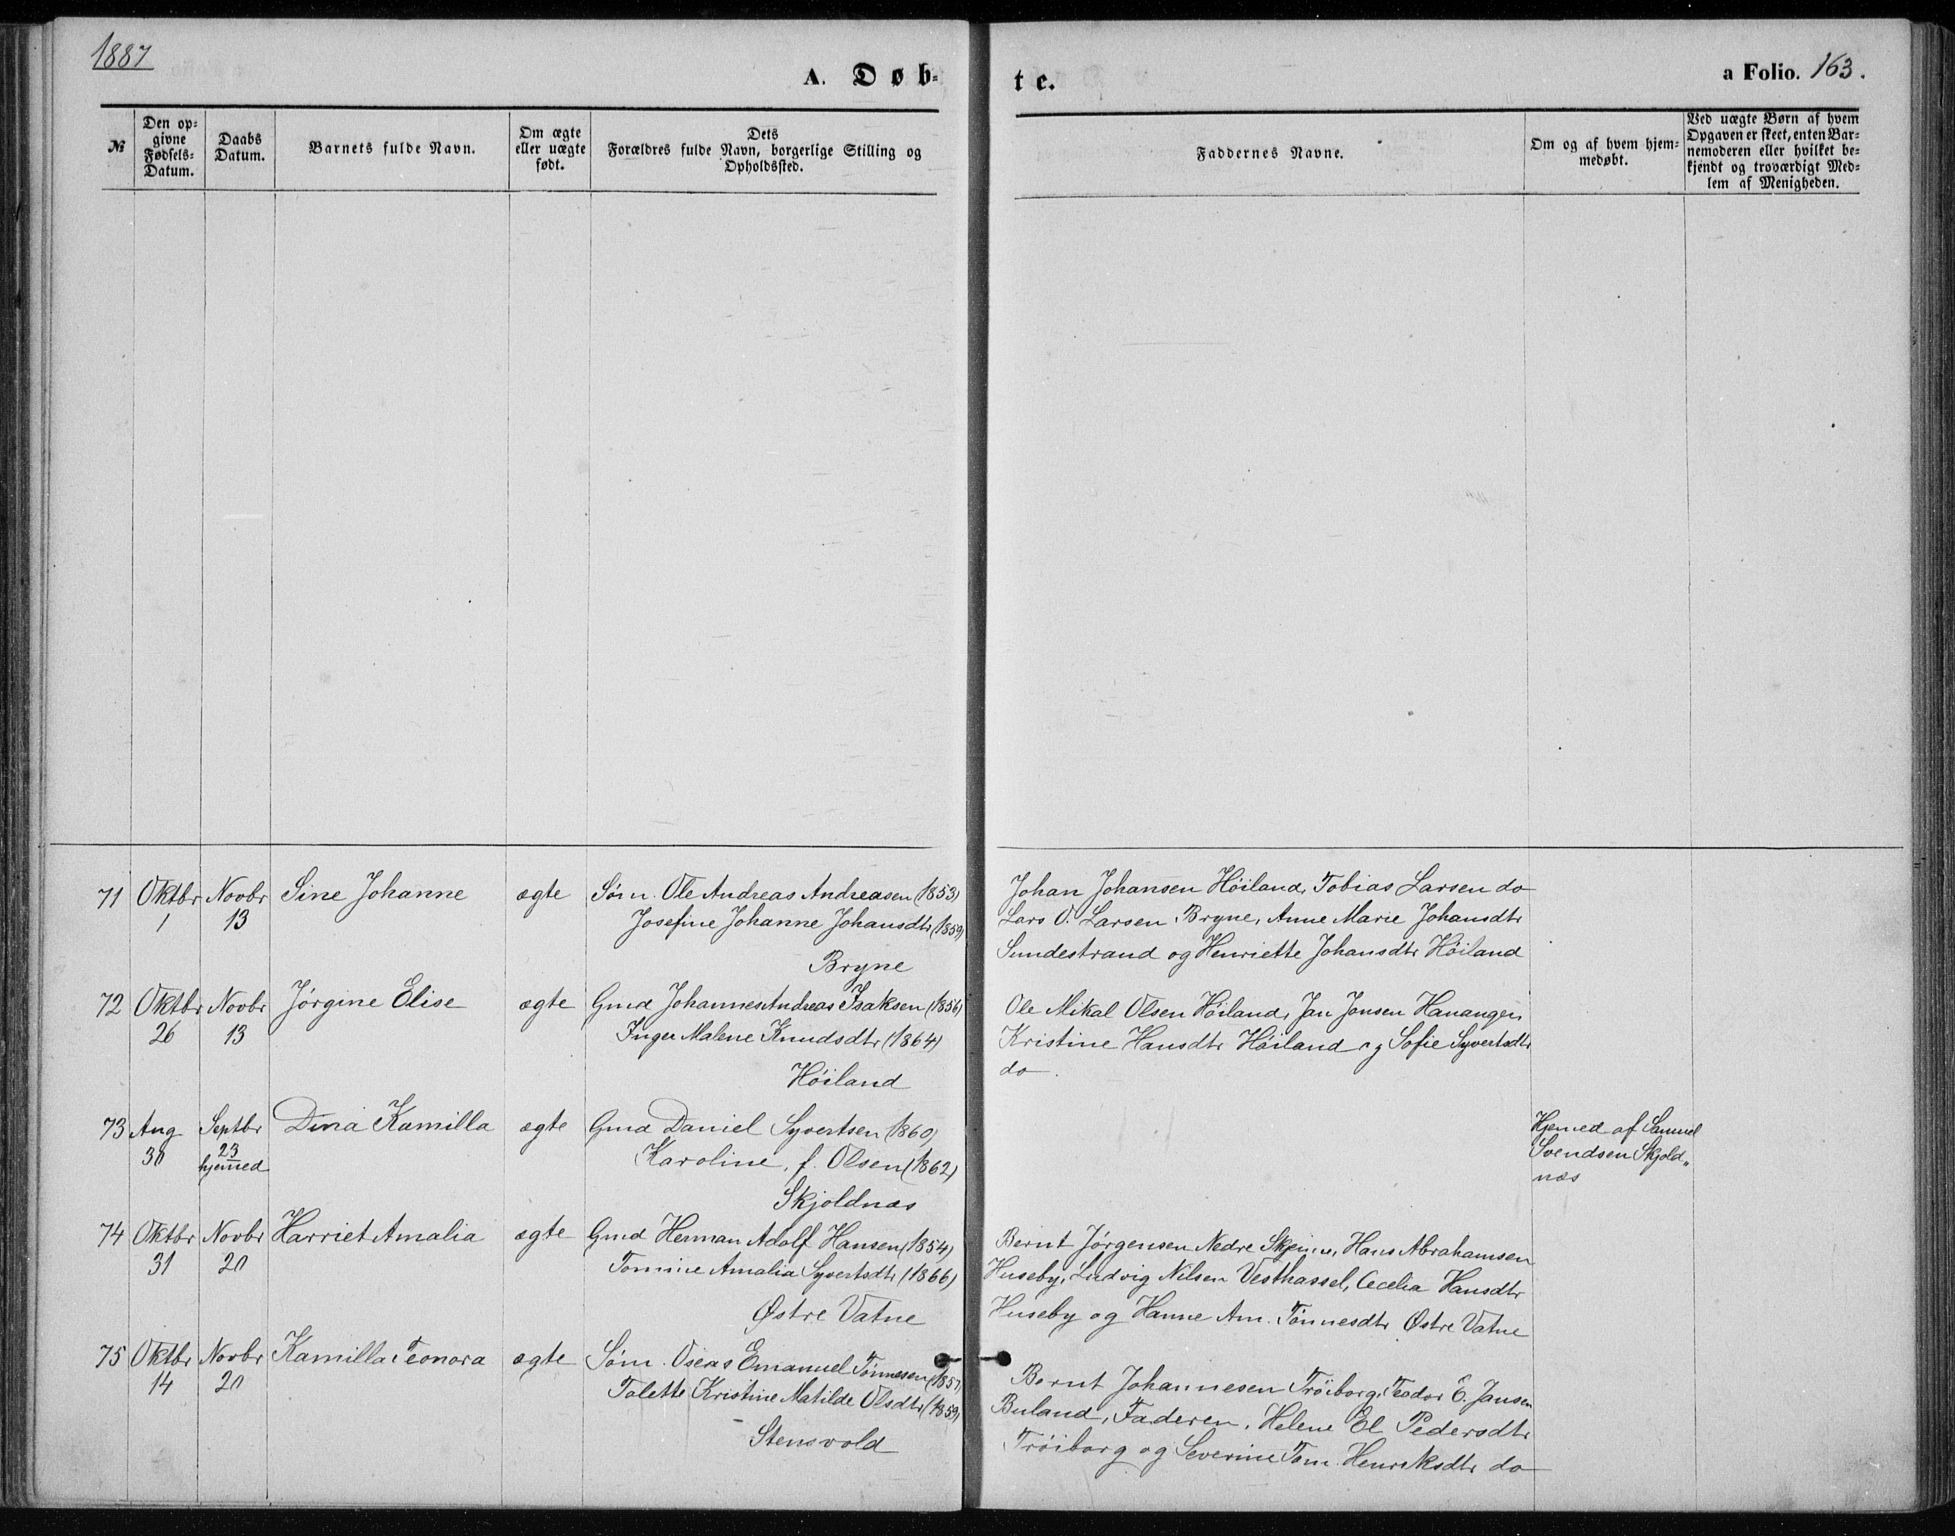 1887
A. Døb-
te.
a Folio. 163.
№
Den op-
givne
Fødsels-
Datum.
Daabs
Datum.
Barnets fulde Navn.
Om ægte
eller uægte
født.
Dets
Forældres fulde Navn, borgerlige Stilling og
Opholdssted.
Faddernes Navne.
Om og af hvem hjem-
medøbt.
Ved uægte Børn af hvem
Opgaven er skeet, enten Bar-
nemoderen eller hvilket be-
kjendt og troværdigt Med-
lem af Menigheden.
71 Oktbr Novbr Sine Johanne ægte Søm. Ole Andreas Andreasen (1853)
1 13 Josefine Johanne Johansdtr (1859)
Bryne
Johan Johansen Höiland, Tobias Larsen do
Lars O. Larsen Bryne, Anne Marie Johansdtr
Sundestrand og Henriette Johansdtr Höiland
72 Oktbr Novbr Jörgine Elise ægte Gmd Johannes Andreas Isaksen (1856)
26 13 Inger Malene Knudsdtr (1864)
Höiland
Ole Mikal Olsen Höiland, Jan Jonsen Hananger,
Kristine Hansdtr Höiland og Sofie Syvertsdtr
do.
73 Aug Septbr Dina Kamilla ægte Gmd Daniel Syvertsen (1860)
30 23 Karoline, f. Olsen (1862)
hjemmed
Skjoldnæs
Hjemed af Samuel
Svendsen Skjold„
næs
74 Oktbr Novbr Harriet Amalia ægte Gmd Herman Adolf Hansen (1854)
31 20 Tomine Amalia Syvertsdtr (1866)
Østre Vatne
Bernt Jörgensen Nedre Skeime, Hans Abrahamsen
Huseby, Ludvig Nilsen Vesthassel, Cecelia Hansdtr
Huseby og Hanne Am. Tönnesdtr Østre Vatne
75 Oktbr Novbr Kamilla Teonora ægte Søm. Oseas Emanuel Tönnesen (1857)
14 20 Tolette Kristine Matilde Olsdtr (1859)
Stensvold
Bernt Johannesen Tröiborg, Teodor E. Jansen
Buland, Faderen, Helene El Pedersdtr
Tröiborg og Severine Tom. Henriksdtr do